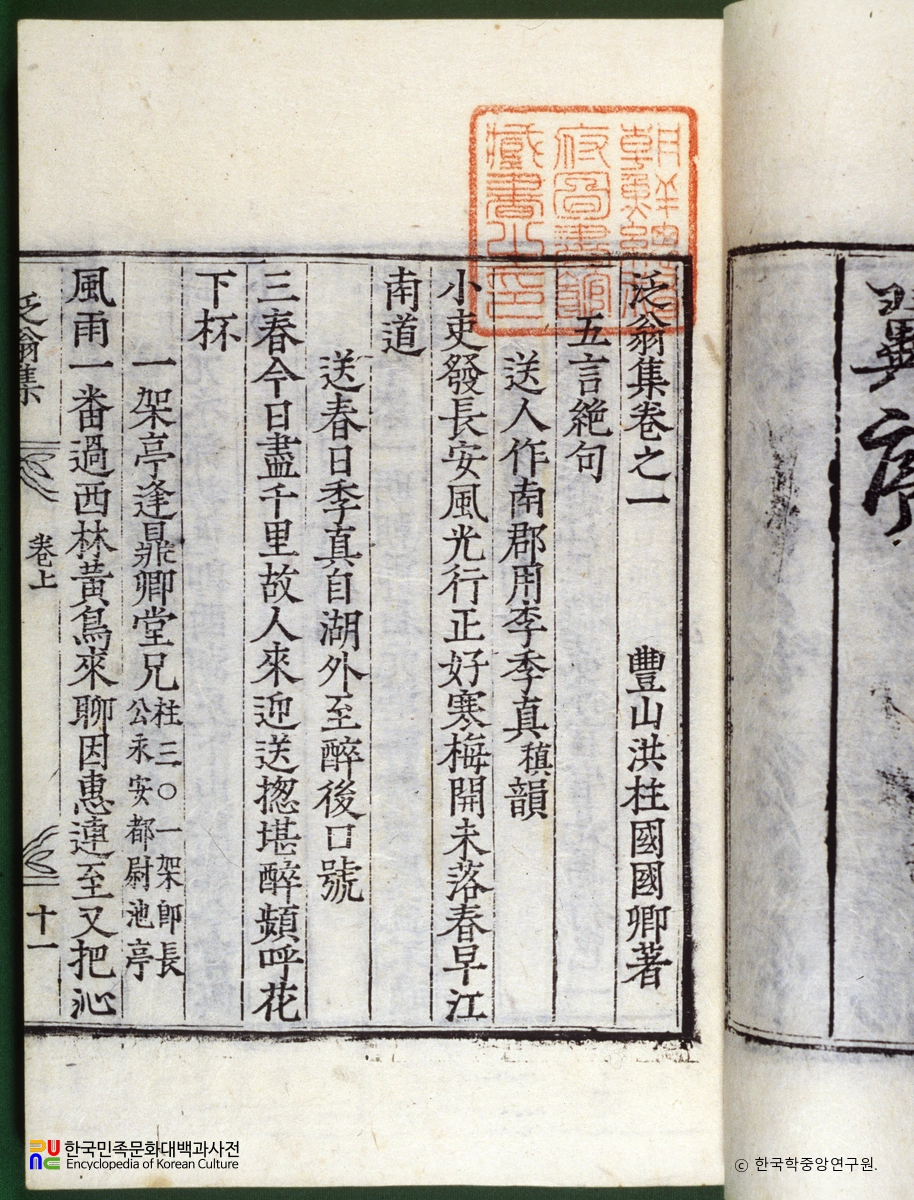 泛翁集卷之一 豐山洪柱國國卿著
五言絶句
送人作南郡用李季真稹韻
小吏發長安風光行正好寒梅開未落春早江
南道
送春日季真自湖外至醉後口號
三春今日盡千里故人來迎送揔堪醉頻呼花
下杯
一架亭逢鼎卿堂兄柱三○一架卽長
公永安都尉池亭
風雨一番過西林黃鳥來聊因惠連至又把沁
泛翁集 卷上 十一
朝鮮總督府圖書館藏書之印
序
한국민족문화대백과사전
Encyclopedia of Korean Culture
ⓒ 한국학중앙연구원.